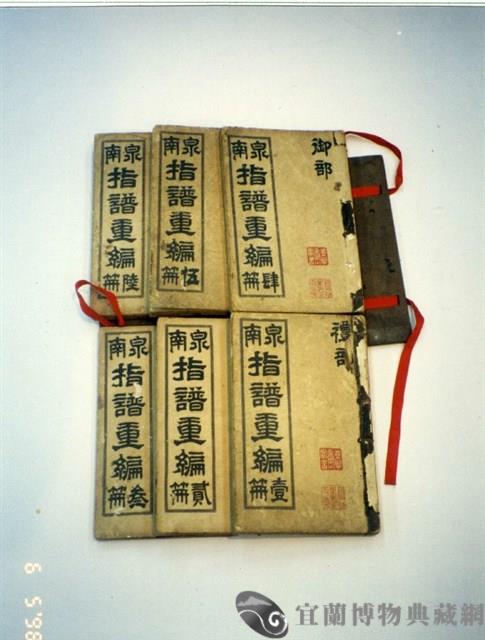 御部
泉南指譜重編肆冊
泉南指譜重編伍冊
泉南指譜重編陸冊
禮部
泉南指譜重編壹冊
泉南指譜重編貳冊
泉南指譜重編叁冊
'86 5 9
宜蘭博物典藏網